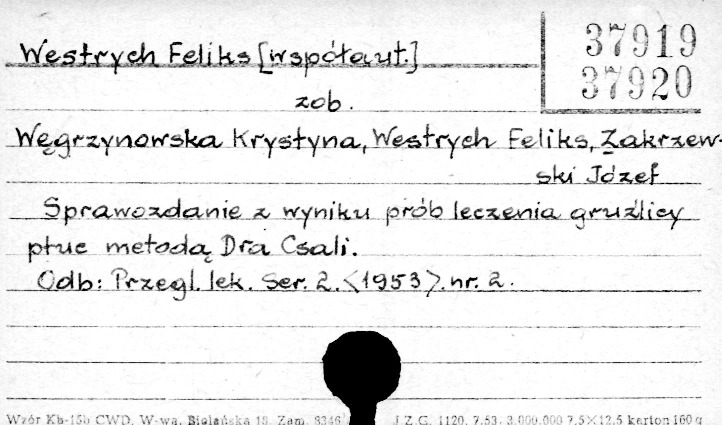 Westrych Feliks [współaut.]
37919
37920
zob.
Węgrzynowska Krystyna, Westrych Feliks, Zakrzew-
ski Józef
Sprawozdanie z wyniku prób leczenia gruźlicy
płuc metodą Dra Csali.
Odb: Przegl. lek. Ser. 2. <1953>. nr. 2.
Wzór Kb-15b CWD, W-wa, Bielańska 18. Zam. 8346 J.Z.G. 1120. 7.53. 3.000.000 7.5×12.5 karton 160 g